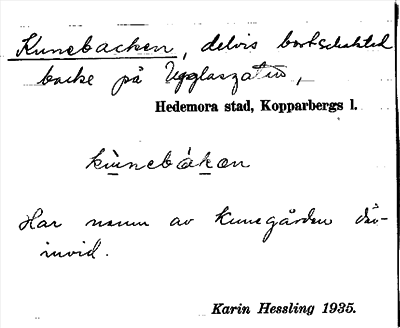 Kunebacken, delvis bortschaktad
backe på Ugglasgatan,
Hedemora stad, Kopparbergs l.
kùnebàkən
Har namn av Kunegården där-
invid.
Karin Hessling 1935.